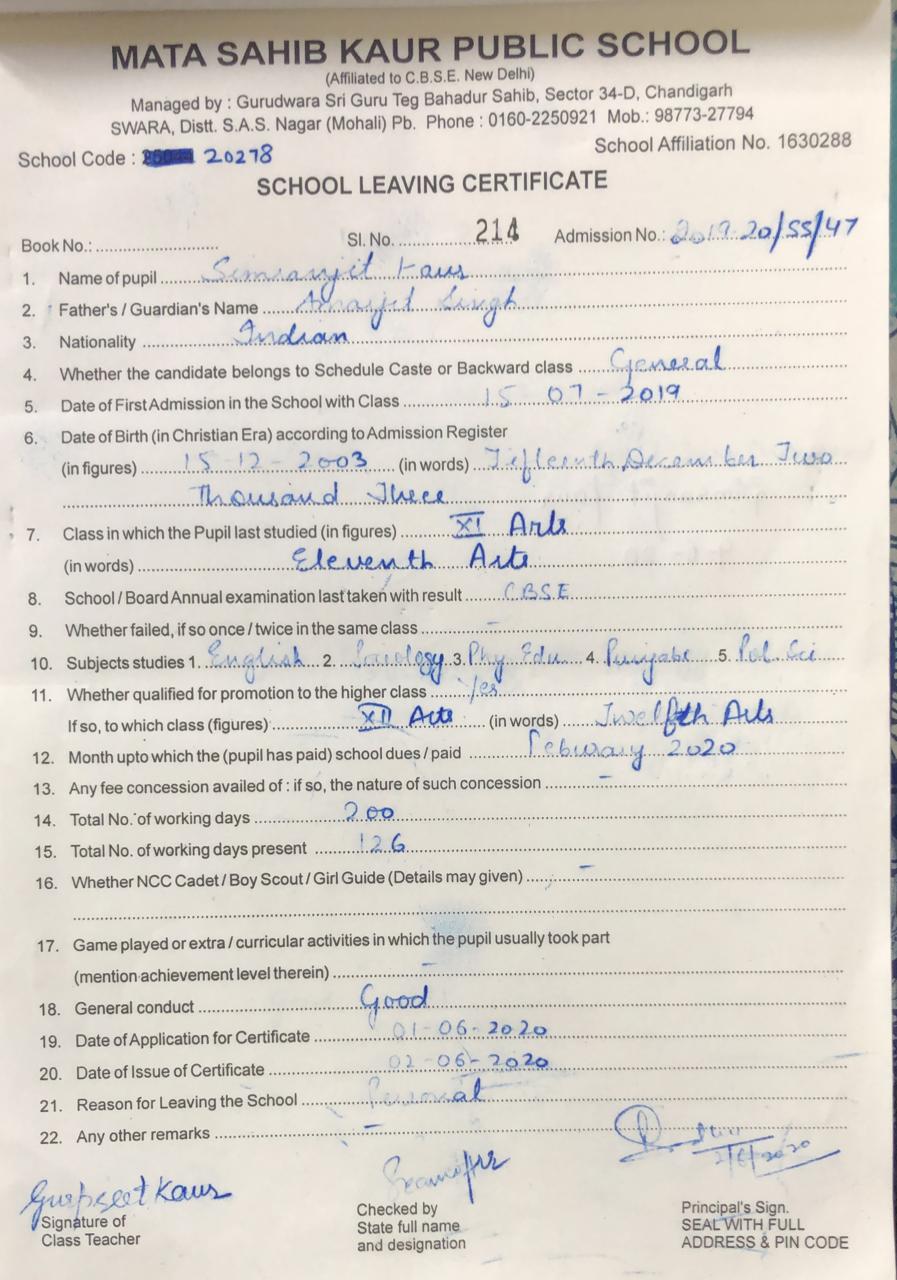 MATA SAHIB KAUR PUBLIC SCHOOL
(Affiliated to C.B.S.E. New Delhi)
Managed by : Gurudwara Sri Guru Teg Bahadur Sahib, Sector 34-D, Chandigarh
SWARA, Distt. S.A.S. Nagar (Mohali) Pb. Phone : 0160-2250921 Mob.: 98773-27794
School Affiliation No. 1630288
School Code : 20278
SCHOOL LEAVING CERTIFICATE
Book No.: Sl. No. 214 Admission No.: 2019-20/SS/47
1. Name of pupil Simranjit Kaur
2. Father's / Guardian's Name Amarjit Singh
3. Nationality Indian
4. Whether the candidate belongs to Schedule Caste or Backward class General
5. Date of First Admission in the School with Class 15-07-2019
6. Date of Birth (in Christian Era) according to Admission Register
(in figures) 15-12-2003 (in words) Fifteenth December Two
Thousand Three
7. Class in which the Pupil last studied (in figures) XI Arts
(in words) Eleventh Arts
8. School / Board Annual examination last taken with result CBSE
9. Whether failed, if so once / twice in the same class –
10. Subjects studies 1. English 2. Sociology 3. Phy Edu 4. Punjabi 5. Pol. Sci
11. Whether qualified for promotion to the higher class Yes
If so, to which class (figures) XII Arts (in words) Twelfth Arts
12. Month upto which the (pupil has paid) school dues / paid Feburary 2020
13. Any fee concession availed of : if so, the nature of such concession –
14. Total No. of working days 200
15. Total No. of working days present 126
16. Whether NCC Cadet / Boy Scout / Girl Guide (Details may given) –
17. Game played or extra / curricular activities in which the pupil usually took part
(mention achievement level therein) –
18. General conduct Good
19. Date of Application for Certificate 01-06-2020
20. Date of Issue of Certificate 02-06-2020
21. Reason for Leaving the School Personal
22. Any other remarks –
2/6/2020
Gurpreet Kaur
Signature of
Class Teacher
Checked by
State full name
and designation
Principal's Sign.
SEAL WITH FULL
ADDRESS & PIN CODE